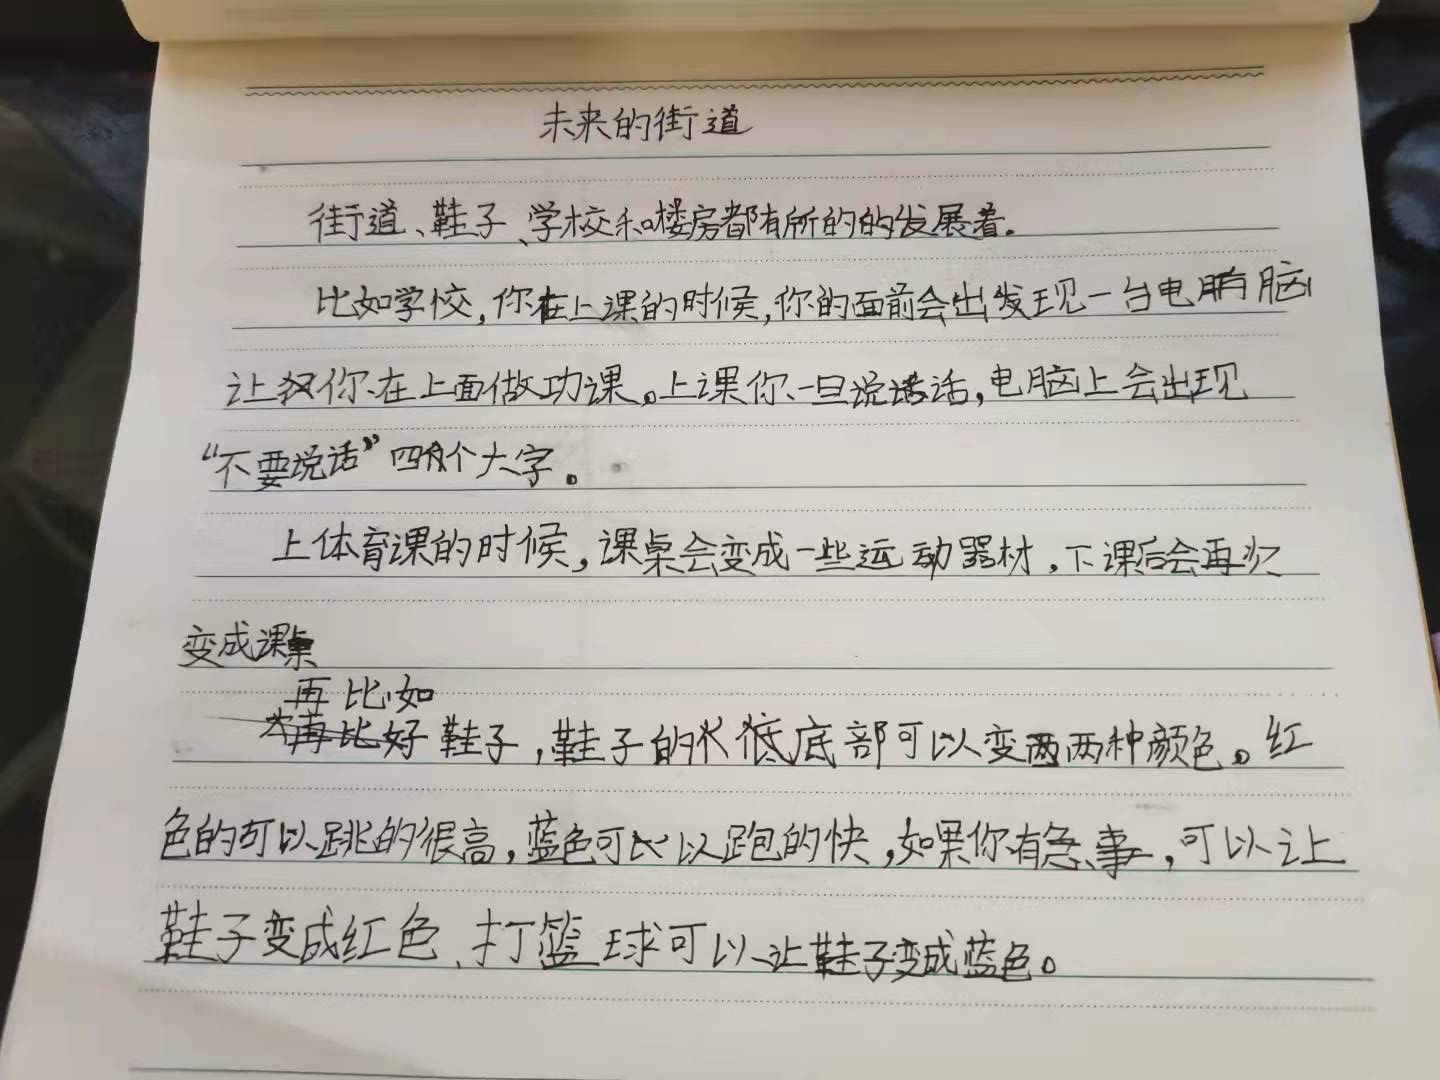 未来的街道
街道、鞋子、学校和楼房都有所的的发展着。
比如学校,你在上课的时候,你的面前会出发现一台电脑
让你在上面做功课。上课你一旦说话,电脑上会出现
“不要说话”四个大字。
上体育课的时候,课桌会变成一些运动器材,下课后会再次
变成课桌
再比如
鞋子,鞋子的底部可以变两种颜色。红
色的可以跳的很高,蓝色可以跑的快,如果你有急事,可以让
鞋子变成红色、打篮球可以让鞋子变成蓝色。